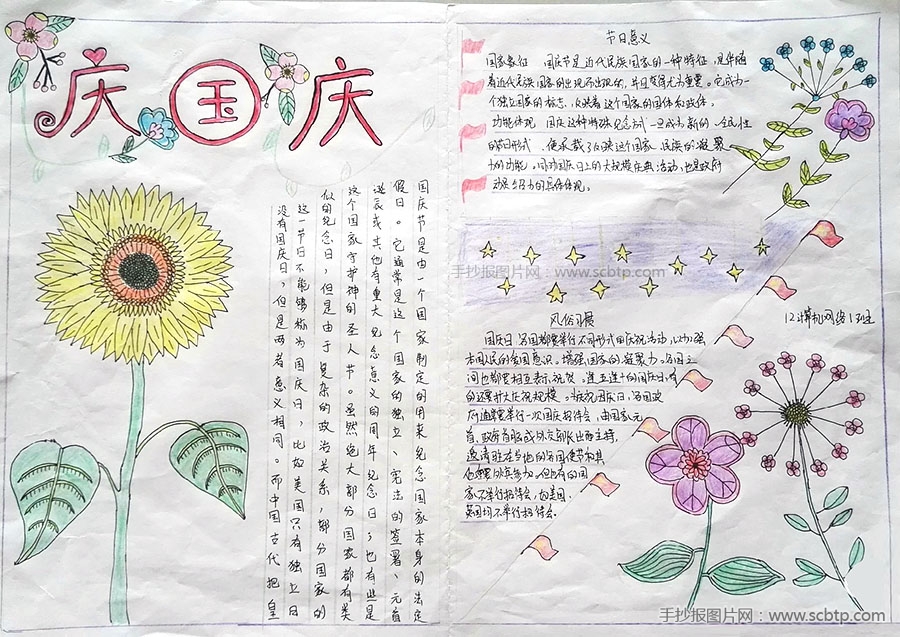 庆国庆
国庆节是由一个国家制定的用来纪念国家本身的法定
假日。它通常是这个国家的独立、宪法的签署、元首
诞辰或其他有重大纪念意义的周年纪念日;也有些是
这个国家守护神的圣人节。虽然绝大部分国家都有类
似的纪念日,但是由于复杂的政治关系,部分国家的
这一节日不能够称为国庆日,比如美国只有独立日
没有国庆日,但是两者意义相同。而中国古代把皇
节日意义
国家象征 国庆节是近代民族国家的一种特征,是伴随
着近代民族国家的出现而出现的,并且变得尤为重要。它成为一
个独立国家的标志,反映着这个国家的国体和政体。
功能体现 国庆这种特殊纪念方式一旦成为新的、全民性
的节日形式,便承载了反映这个国家、民族的凝聚
力的功能。同时国庆日上的大规模庆典活动,也是政府
动员与号召力的具体体现。
手抄报图片网:www.scbtp.com
12计算机网络1班
风俗习展
国庆日,各国都要举行不同形式的庆祝活动,以加强
本国人民的爱国意识。增强国家的凝聚力。各国之
间也都要相互表示祝贺。逢五逢十的国庆日,有
的还要扩大庆祝规模。为庆祝国庆日,各国政
府通常要举行一次国庆招待会,由国家元
首、政府首脑或外交部长出面主持,
邀请驻在当地的各国使节和其
他重要外宾参加。但也有的国
家不举行招待会,如美国、
英国均不举行招待会。
手抄报图片网:www.scbtp.com